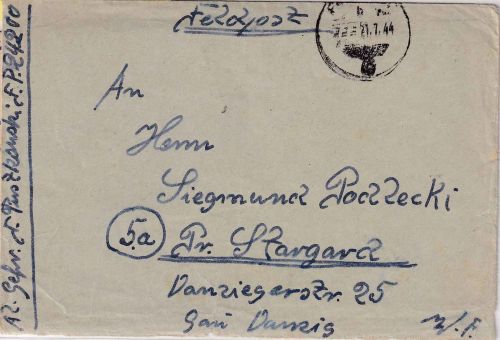 Feldpost
21.7.44
An
Herrn
Siegmund Podlecki
5a Pr. Stargard
Danzigerstr. 25
Gau Danzig
Gefr. F.P. 24200